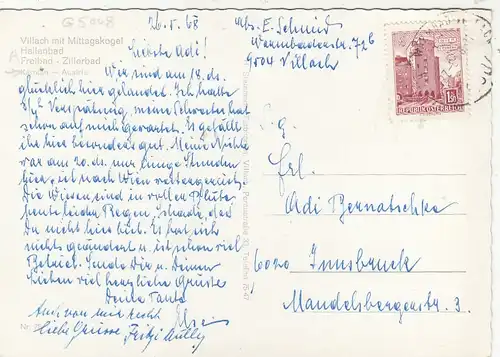 G5008
Villach mit Mittagskogel
Hallenbad
Freibad - Zillerbad
Kärnten — Austria
26.5.68
Abs. E. Schmid
Warmbaderstr. 72b
9504 Villach
Liebste Adi!
Wir sind am 19. ds.
glücklich hier gelandet. Ich hatte
Verspätung, meine Schwester hat
schon auf mich gewartet. Es gefällt
ihr hier besonders gut. Meine Nichte
war am 20. ds. nur einige Stunden
hier, ist nach Wien weitergereist.
Die Wiesen sind in voller Blüte,
heute leider Regen. Schade, daß
Du nicht hier bist. Es hat sich
nichts geändert u. ist schon viel
Betrieb. Sende Dir u. Deinen
Lieben viel herzliche Grüsse
Deine Tante
Auch von mir recht
liebe Grüsse Fritzi
REPUBLIK ÖSTERREICH
Frl.
Adi Bernatschke
6020 Innsbruck
Mandelsbergerstr. 3.